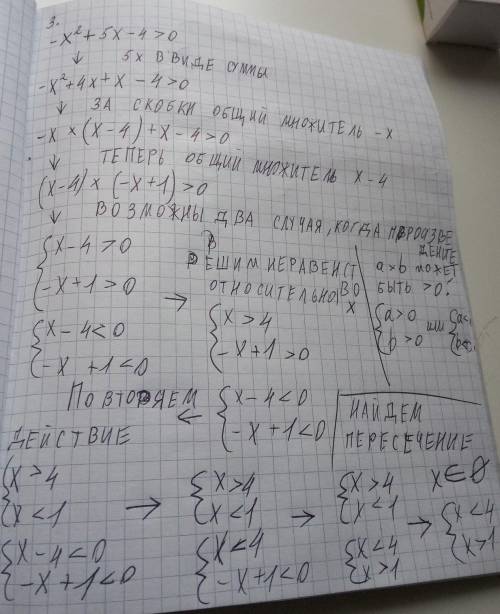 3.
-x² + 5x - 4 > 0
↓ 5x В ВИДЕ СУММЫ
-x² + 4x + x - 4 > 0
↓ ЗА СКОБКИ ОБЩИЙ МНОЖИТЕЛЬ -x
-x × (x-4) + x - 4 > 0
↓ ТЕПЕРЬ ОБЩИЙ МНОЖИТЕЛЬ x-4
(x-4) × (-x+1) > 0
↓ ВОЗМОЖНЫ ДВА СЛУЧАЯ, КОГДА ПРОИЗВЕ
ДЕНИЕ
a×b МОЖЕТ
БЫТЬ > 0:
{a > 0
{b > 0
ИЛИ
{x - 4 > 0
{-x + 1 > 0
{x - 4 < 0
{-x + 1 < 0
→
РЕШИМ НЕРАВЕНСТ
ВО
ОТНОСИТЕЛЬНО
x
{x > 4
{-x + 1 > 0
{x - 4 < 0
{-x + 1 < 0
←
ПОВТОРЯЕМ
ДЕЙСТВИЕ
НАЙДЕМ
ПЕРЕСЕЧЕНИЕ
{x > 4
{x < 1
{x - 4 < 0
{-x + 1 < 0
→
{x > 4
{x < 1
{x < 4
{-x + 1 < 0
→
{x > 4
{x < 1
{x < 4
{x > 1
→
x ∈ Ø
{x < 4
{x > 1